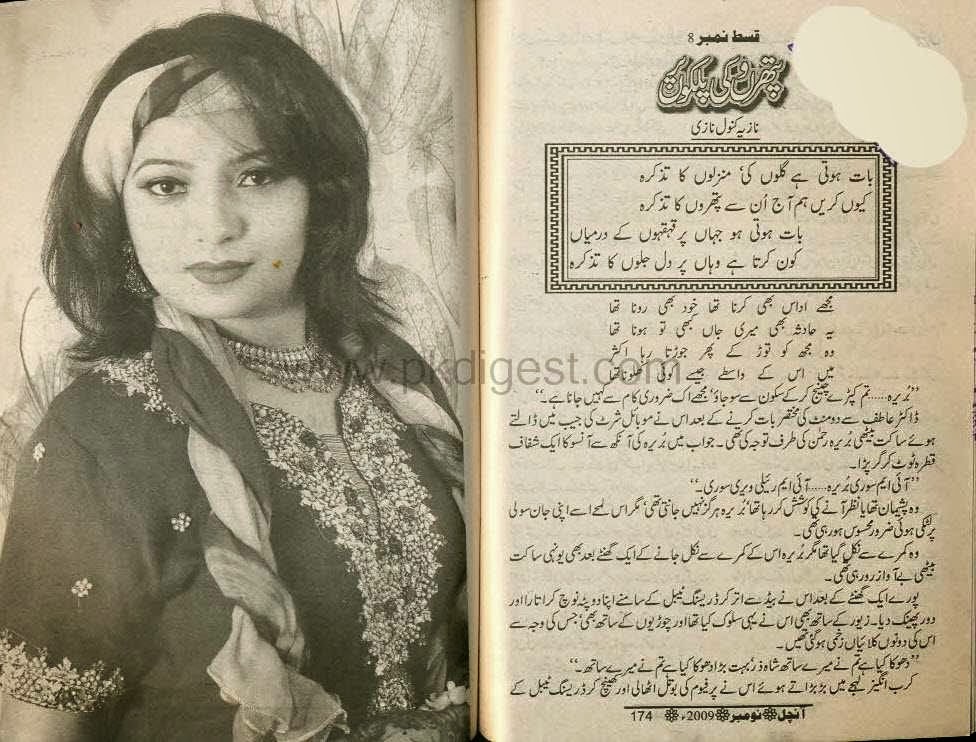 قسط نمبر 8
پتھروں کی پلکوں پر
نازیہ کنول نازی
بات ہوتی ہے گلوں کی، منزلوں کا تذکرہ
کیوں کریں ہم آج اُن سے پتھروں کا تذکرہ
بات ہوتی ہو جہاں پر قہقہوں کے درمیاں
کون کرتا ہے وہاں پر دل جلوں کا تذکرہ
مجھے اداس بھی کرنا تھا خود بھی رونا تھا
یہ حادثہ بھی میری جاں کبھی تو ہونا تھا
وہ مجھ کو توڑ کے پھر جوڑتا رہا اکثر
میں اس کے واسطے جیسے کوئی کھلونا تھا
www.pkdigest.com
’’بُریرہ......تم کپڑے چینج کرکے سکون سے سو جاؤ‘ مجھے اک ضروری کام سے کہیں جانا ہے۔‘‘
ڈاکٹر عاطف سے دو منٹ کی مختصر بات کرنے کے بعد اس نے موبائل شرٹ کی جیب میں ڈالتے
ہوئے ساکت بیٹھی بُریرہ رحمٰن کی طرف توجہ کی تھی۔ جواب میں بُریرہ کی آنکھ سے آنسو کا ایک شفاف
قطرہ ٹوٹ کر گر پڑا۔
’’آئی ایم سوری بُریرہ......آئی ایم رئیلی ویری سوری۔‘‘
وہ پشیمان تھا یا نظر آنے کی کوشش کر رہا تھا‘ بُریرہ ہرگز نہیں جانتی تھی‘ مگر اس لمحے اسے اپنی جان سولی
پر لٹکی ہوئی ضرور محسوس ہو رہی تھی۔
وہ کمرے سے نکل گیا تھا مگر بُریرہ اس کے کمرے سے نکل جانے کے ایک گھنٹے بعد بھی یونہی ساکت
بیٹھی بے آواز رو رہی تھی۔
پورے ایک گھنٹے کے بعد اس نے بیڈ سے اتر کر ڈریسنگ ٹیبل کے سامنے اپنا دوپٹہ نوچ کر اتارا اور
دور پھینک دیا۔ زیور کے ساتھ بھی اس نے یہی سلوک کیا تھا اور چوڑیوں کے ساتھ بھی‘ جس کی وجہ سے
اس کی دونوں کلائیاں زخمی ہو گئی تھیں۔
’’دھوکا کیا ہے تم نے میرے ساتھ شاہ ذر‘ بہت بڑا دھوکا کیا ہے تم نے میرے ساتھ۔‘‘
کرب انگیز لہجے میں بڑبڑاتے ہوئے اس نے پرفیوم کی بوتل اٹھالی اور کھینچ کر ڈریسنگ ٹیبل کے
آنچل نومبر 2009ء 174